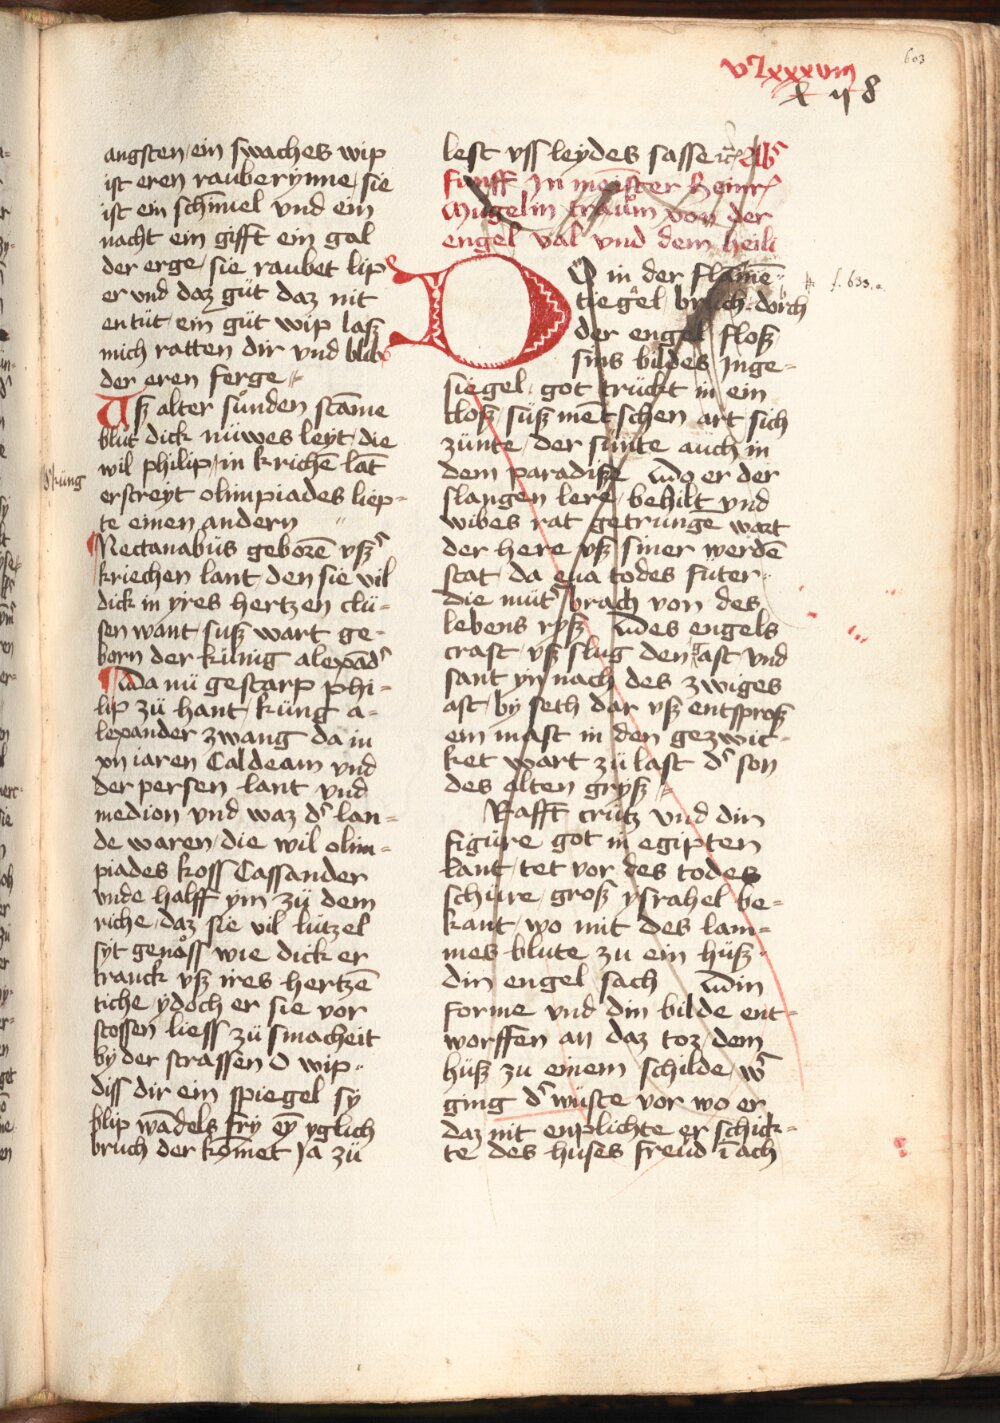 603
vᶜlxxxviij
angsten / ein swaches wip
ist eren rauberÿnne / sie
ist ein schimel vnd ein
nacht ein gifft ein gal
der erge / sie raubet lip
er vnd daz gůt daz nit
entüt / ein güt wip lasz
mich ratten dir vnd blib
der eren ferge
Usz alter sünden stāme
blüt dick nüwes leyt / die
wil philip / in krichē lāt
erstreyt olimpiades liep-
te einen andern
küng
Nectanabüs geborē vsz
kriechen lant / den sie vil
dick in ÿres hertzen clü-
sen want / susz wart ge-
born der künig alexād
Da nü gestarp phi-
lip zü hant / küng a-
lexander zwang da in
xij iaren Caldeam vnd
der persen lant vnd
medion vnd waz dˀ lan-
de waren / die wil olim-
piades koss Cassander
vnde halff ÿm zü dem
riche / daz sie vil lützel
syt genoss wie dick er
tranck vsz ires hertzē
tiche / ÿdoch er sie vor
stossen liess zü smacheit
bÿ der strassen O wip
diss dir ein spiegel sy
blip wādels frÿ eÿ yglich
bruch der komet Ja zü
lest vss leydes sasse etc
fünff In meister Heinrˀ
Mugelin traum von der
engel val vnd dem heili
DO in der flamē
tiegel brüch / dorch
der engel flosz
sins bildes Inge-
siegel / got trückt in ein
closz süsz mentschen art sich
zünte / der sünte auch in
dem paradisze / wo er der
slangen lere / behilt vnd
wibes rat getrunge wart
der here vsz siner werdē
stat / da eua todes futer
die mütˀ brach von des
lebens rysz / Des engels
crast vsz slug den gast vnd
sant ÿn nach des zwiges
ast / bÿ seth dar vsz entsprosz
ein mast in den gezwic-
ket wart zü last dˀ son
des alten grysz
Krafft crütz vnd din
figüre got in egipten
lant / tet vor des todes
schüre / grosz ysrahel be-
kant / wo mit des lam-
mes blute zu ein hüsz
din engel sach Din
forme vnd din bilde ent-
worffen an daz toz / dem
hüsz zu einem schilde / wˀ
ging dˀ wüste vor wo er
daz nit enplichte er schick-
te des huses freud ī ach
f. 633.a